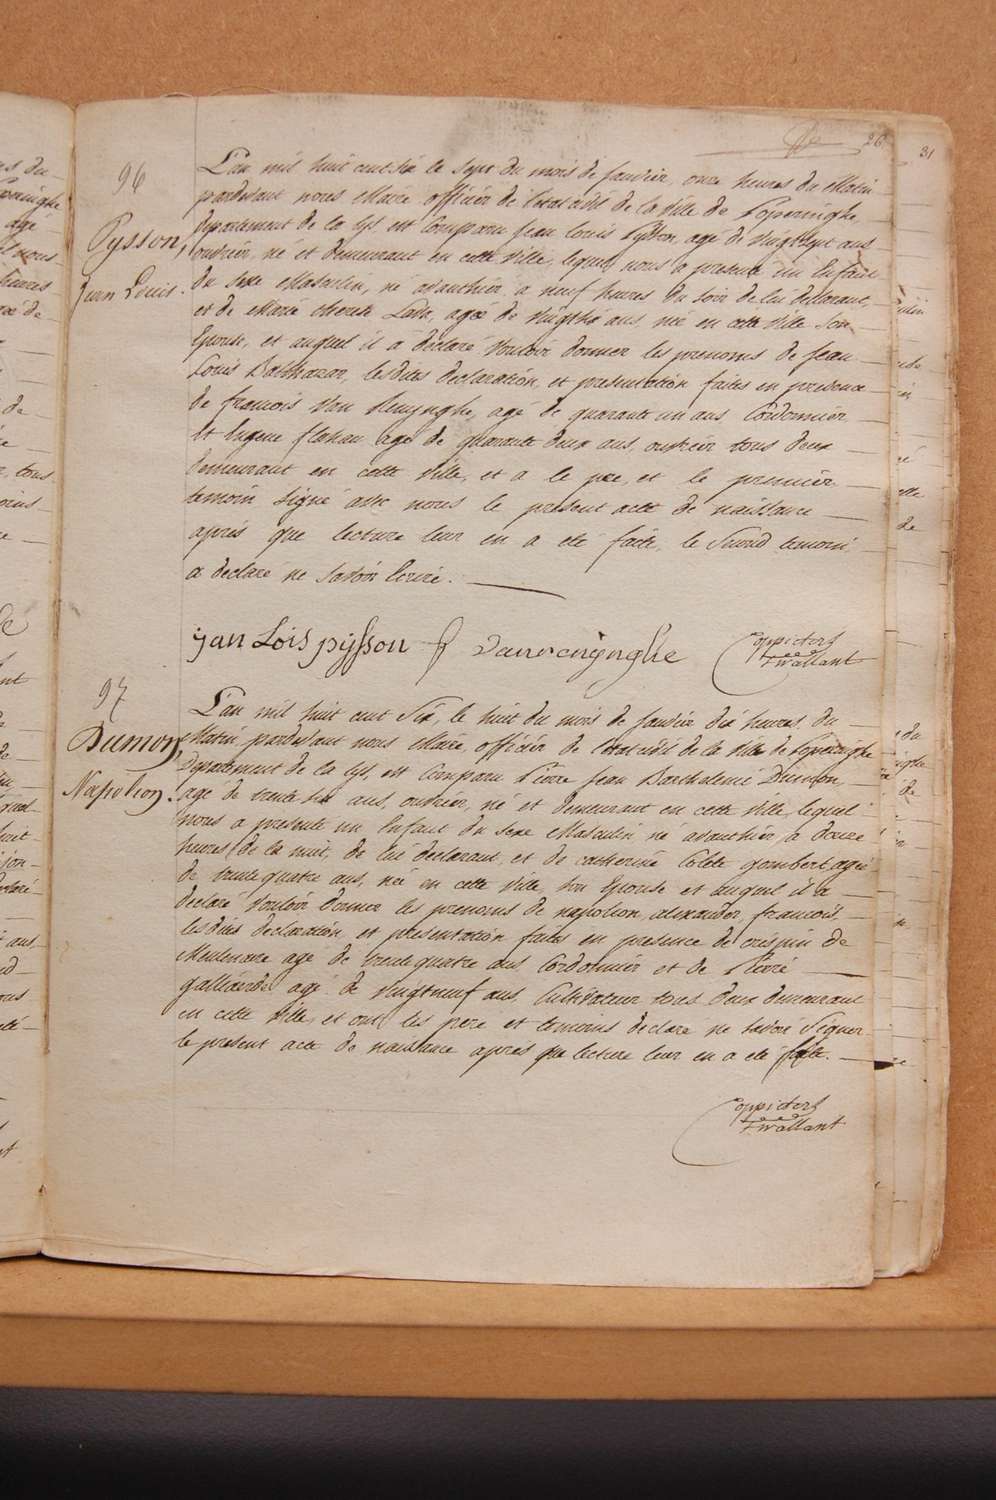 26
31
96
Pysson,
Jean Louis.
L'an mil huit cent six le sept du mois de janvier, onze heures du Matin
pardevant nous Maire officier de l'état civil de la ville de Poperinghe
département de la Lys est Comparu Jean Louis Pysson, agé de vingtsept ans
ouvrier, né et demeurant en cette ville, lequel nous a presenté un Enfant
du sexe Masculin, né avanthier a neuf heures du soir de lui declarant,
et de Marie therese agée de vingtsix ans, née en cette ville son
Epouse, et auquel il a declaré vouloir donner les prenoms de Jean
Louis Balthazar, lesdites declaration et presentation faites en presence
de francois Van Renynghe, agé de quarante un ans, Cordonnier,
et Eugene agé de quarante deux ans, ouvrier tous deux
demeurant en cette ville, et a le pere, et le premier
temoin signé avec nous le present acte de naissance
aprés que lecture leur en a eté faite, le second temoin
a declaré ne savoir Ecrire.
jan Lois pysson f vanrenijnghe
97
Dumon,
Napoleon.
L'an mil huit cent Six, le huit du mois de janvier dix heures du
Matin, pardevant nous Maire, officier de l'état civil de la ville de Poperinghe
Departement de la Lys, est Comparu Pierre Jean Barthelemi Dumon
agé de trente six ans, ouvrier, né et demeurant en cette ville, lequel
nous a presenté un Enfant du sexe Masculin né avanthier a douze
heures de la nuit, de lui declarant, et de catherine Colete gombert agée
de trente quatre ans, née en cette ville, son Epouse et auquel il a
declaré vouloir donner les prenoms de napoleon, alexander, francois,
lesdites declaration et presentation faites en presence de crispin de
Meulenaere agé de trente quatre ans Cordonnier et de Pierre
agé de vingtneuf ans Cultivateur tous deux demeurant
en cette ville, et ont les pere et temoins declaré ne savoir Signer
le present acte de naissance aprés que lecture leur en a eté faite.